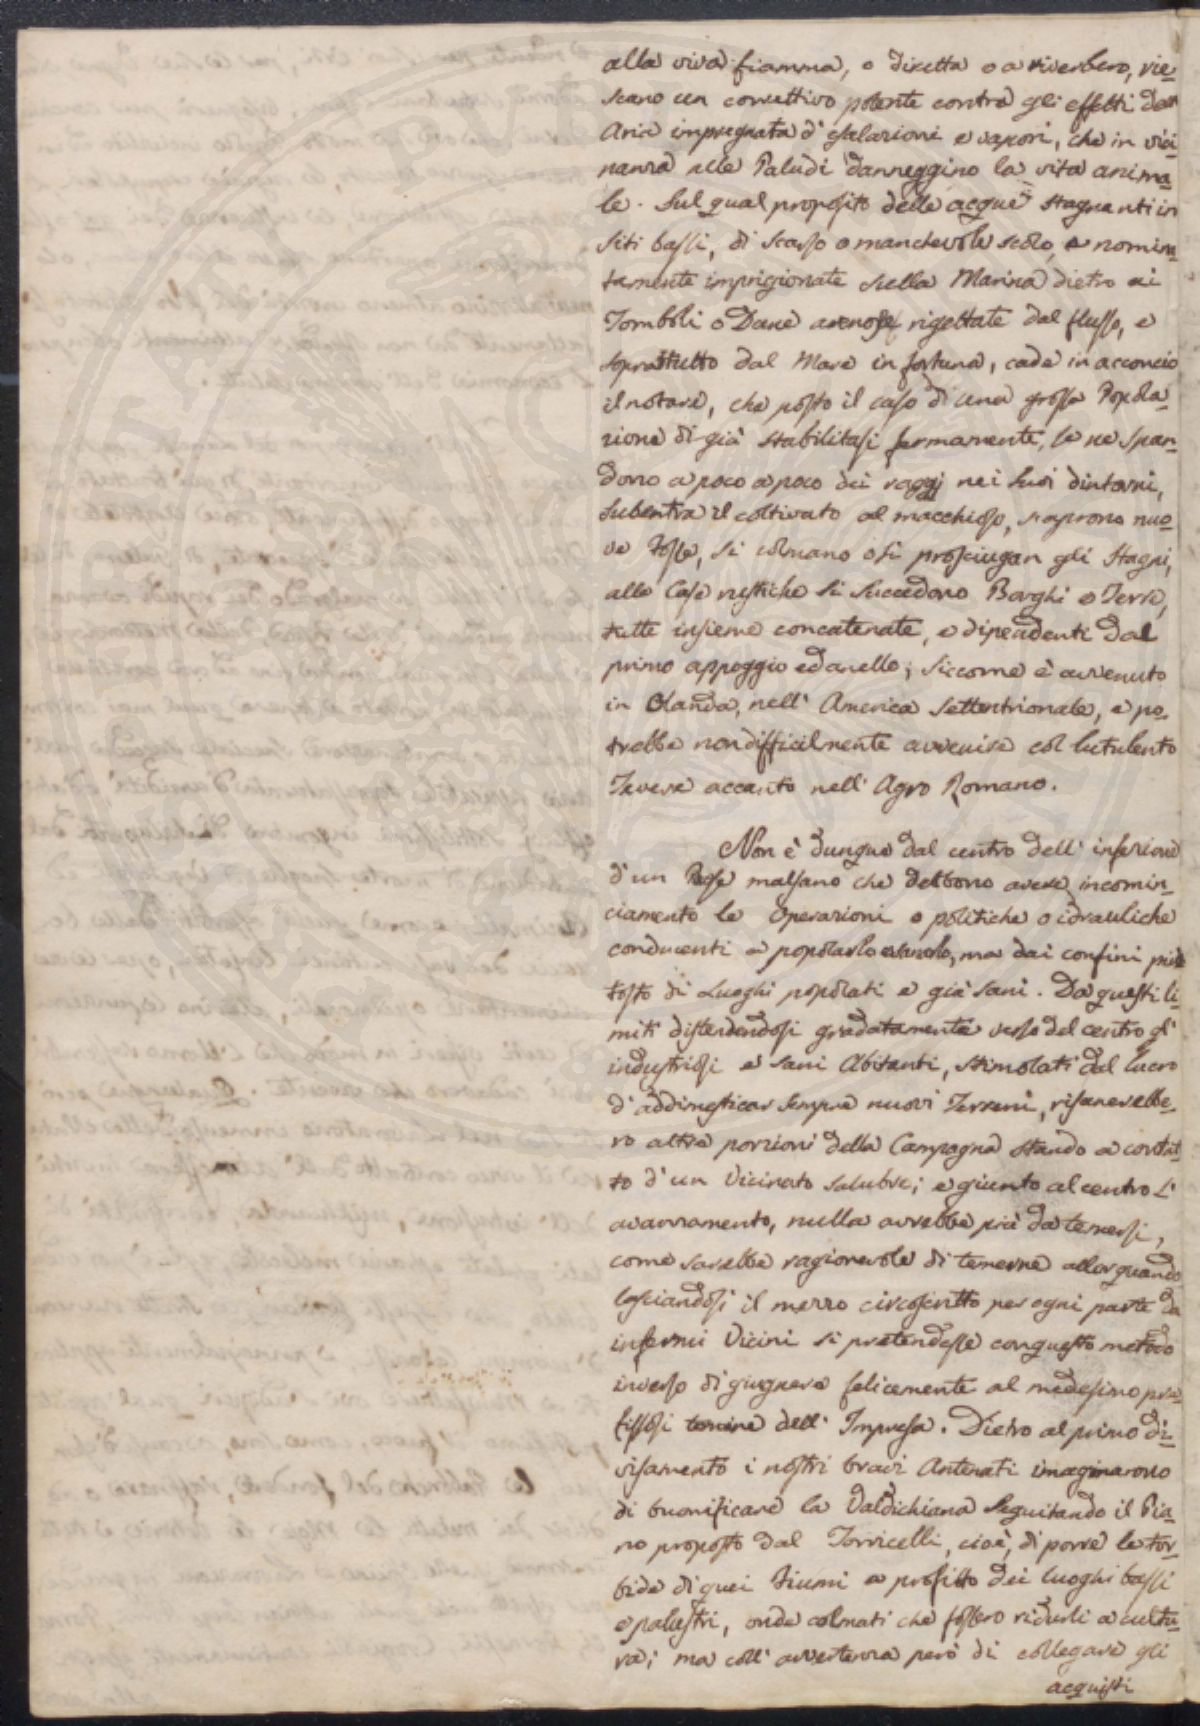 alla viva fiamma, o diretta o a riverbero, rie-
scano un correttivo potente contra gli effetti dell'
Aria impregnata d'esalazioni e vapori, che in vici-
nanza alle Paludi danneggino la vita anima-
le. Sul qual proposito delle acque stagnanti in
siti bassi, di scarso o manchevole scolo, e nomina-
tamente imprigionate sulla Marina dietro ai
Tomboli o Dune arenose rigettate dal flusso, e
soprattutto dal Mare in fortuna, cade in acconcio
il notare, che posto il caso di una grossa Popola-
zione di già stabilitasi fermamente, se ne span-
dono a poco a poco dei raggj nei suoi dintorni,
subentra il coltivato al macchioso, s'aprono nuo-
ve Fosse, si colmano o si prosciugan gli Stagni,
alle Case rustiche si succedono Borghi e Terre,
tutte insieme concatenate, e dipendenti dal
primo appoggio ed anello; siccome è avvenuto
in Olanda, nell' America Settentrionale, e po-
trebbe non difficilmente avvenire col lutulento
Tevere accanto nell' Agro Romano.
Non è dunque dal centro dell' infezione
d'un Paese malsano che debbono avere incomin-
ciamento le Operazioni o politiche o idrauliche
conducenti a popolarlo e sanarlo, ma dai confini piut-
tosto di Luoghi popolati e già sani. Da questi li-
miti distendendosi gradatamente verso del centro gl'
industriosi e sani Abitanti, stimolati dal lucro
d'addimesticar sempre nuovi Terreni, risanerebbe-
ro altre porzioni della Campagna stando a contat-
to d'un Vicinato salubre; e giunto al centro l'
avanzamento, nulla avrebbe più da temersi,
come sarebbe ragionevole di temerne allorquando
lasciandosi il mezzo circoscritto per ogni parte da
infermi Vicini si pretendesse con questo metodo
inverso di giugnere felicemente al medesimo pre-
fissosi termine dell' Impresa. Dietro al primo di-
visamento i nostri bravi Antenati imaginarono
di buonificare la Valdichiana seguitando il Pia-
no proposto dal Torricelli, cioè, di porre le tor-
bide di quei Fiumi a profitto dei luoghi bassi
e palustri, onde colmati che fossero ridurli a cultu-
ra; ma coll' avvertenza però di collegare gli
acquisti